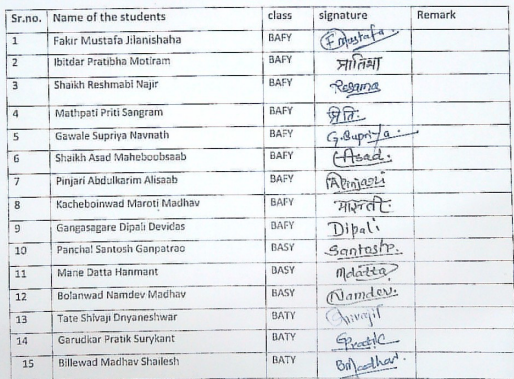 Sr.no. Name of the students class signature Remark
1 Fakir Mustafa Jilanishaha BAFY F Mustafa
2 Ibitdar Pratibha Motiram BAFY प्रातिभा
3 Shaikh Reshmabi Najir BAFY
4 Mathpati Priti Sangram BAFY प्रिति
5 Gawale Supriya Navnath BAFY G. Supriya
6 Shaikh Asad Maheboobsaab BAFY Asad
7 Pinjari Abdulkarim Alisaab BAFY
8 Kacheboinwad Maroti Madhav BAFY मारुती
9 Gangasagare Dipali Devidas BAFY Dipali
10 Panchal Santosh Ganpatrao BASY Santosh
11 Mane Datta Hanmant BASY Mdatta
12 Bolanwad Namdev Madhav BASY Namdev
13 Tate Shivaji Dnyaneshwar BATY
14 Garudkar Pratik Surykant BATY Pratik
15 Billewad Madhav Shailesh BATY